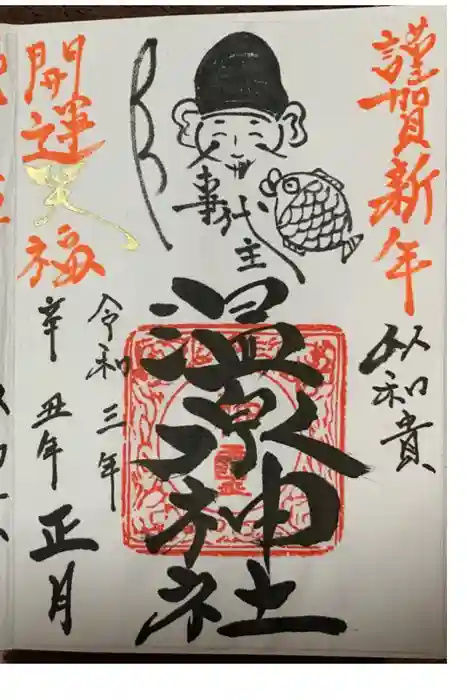 謹賀新年
以和貴
事代主
温泉神社
令和三年
辛丑年正月
開運
笑
福